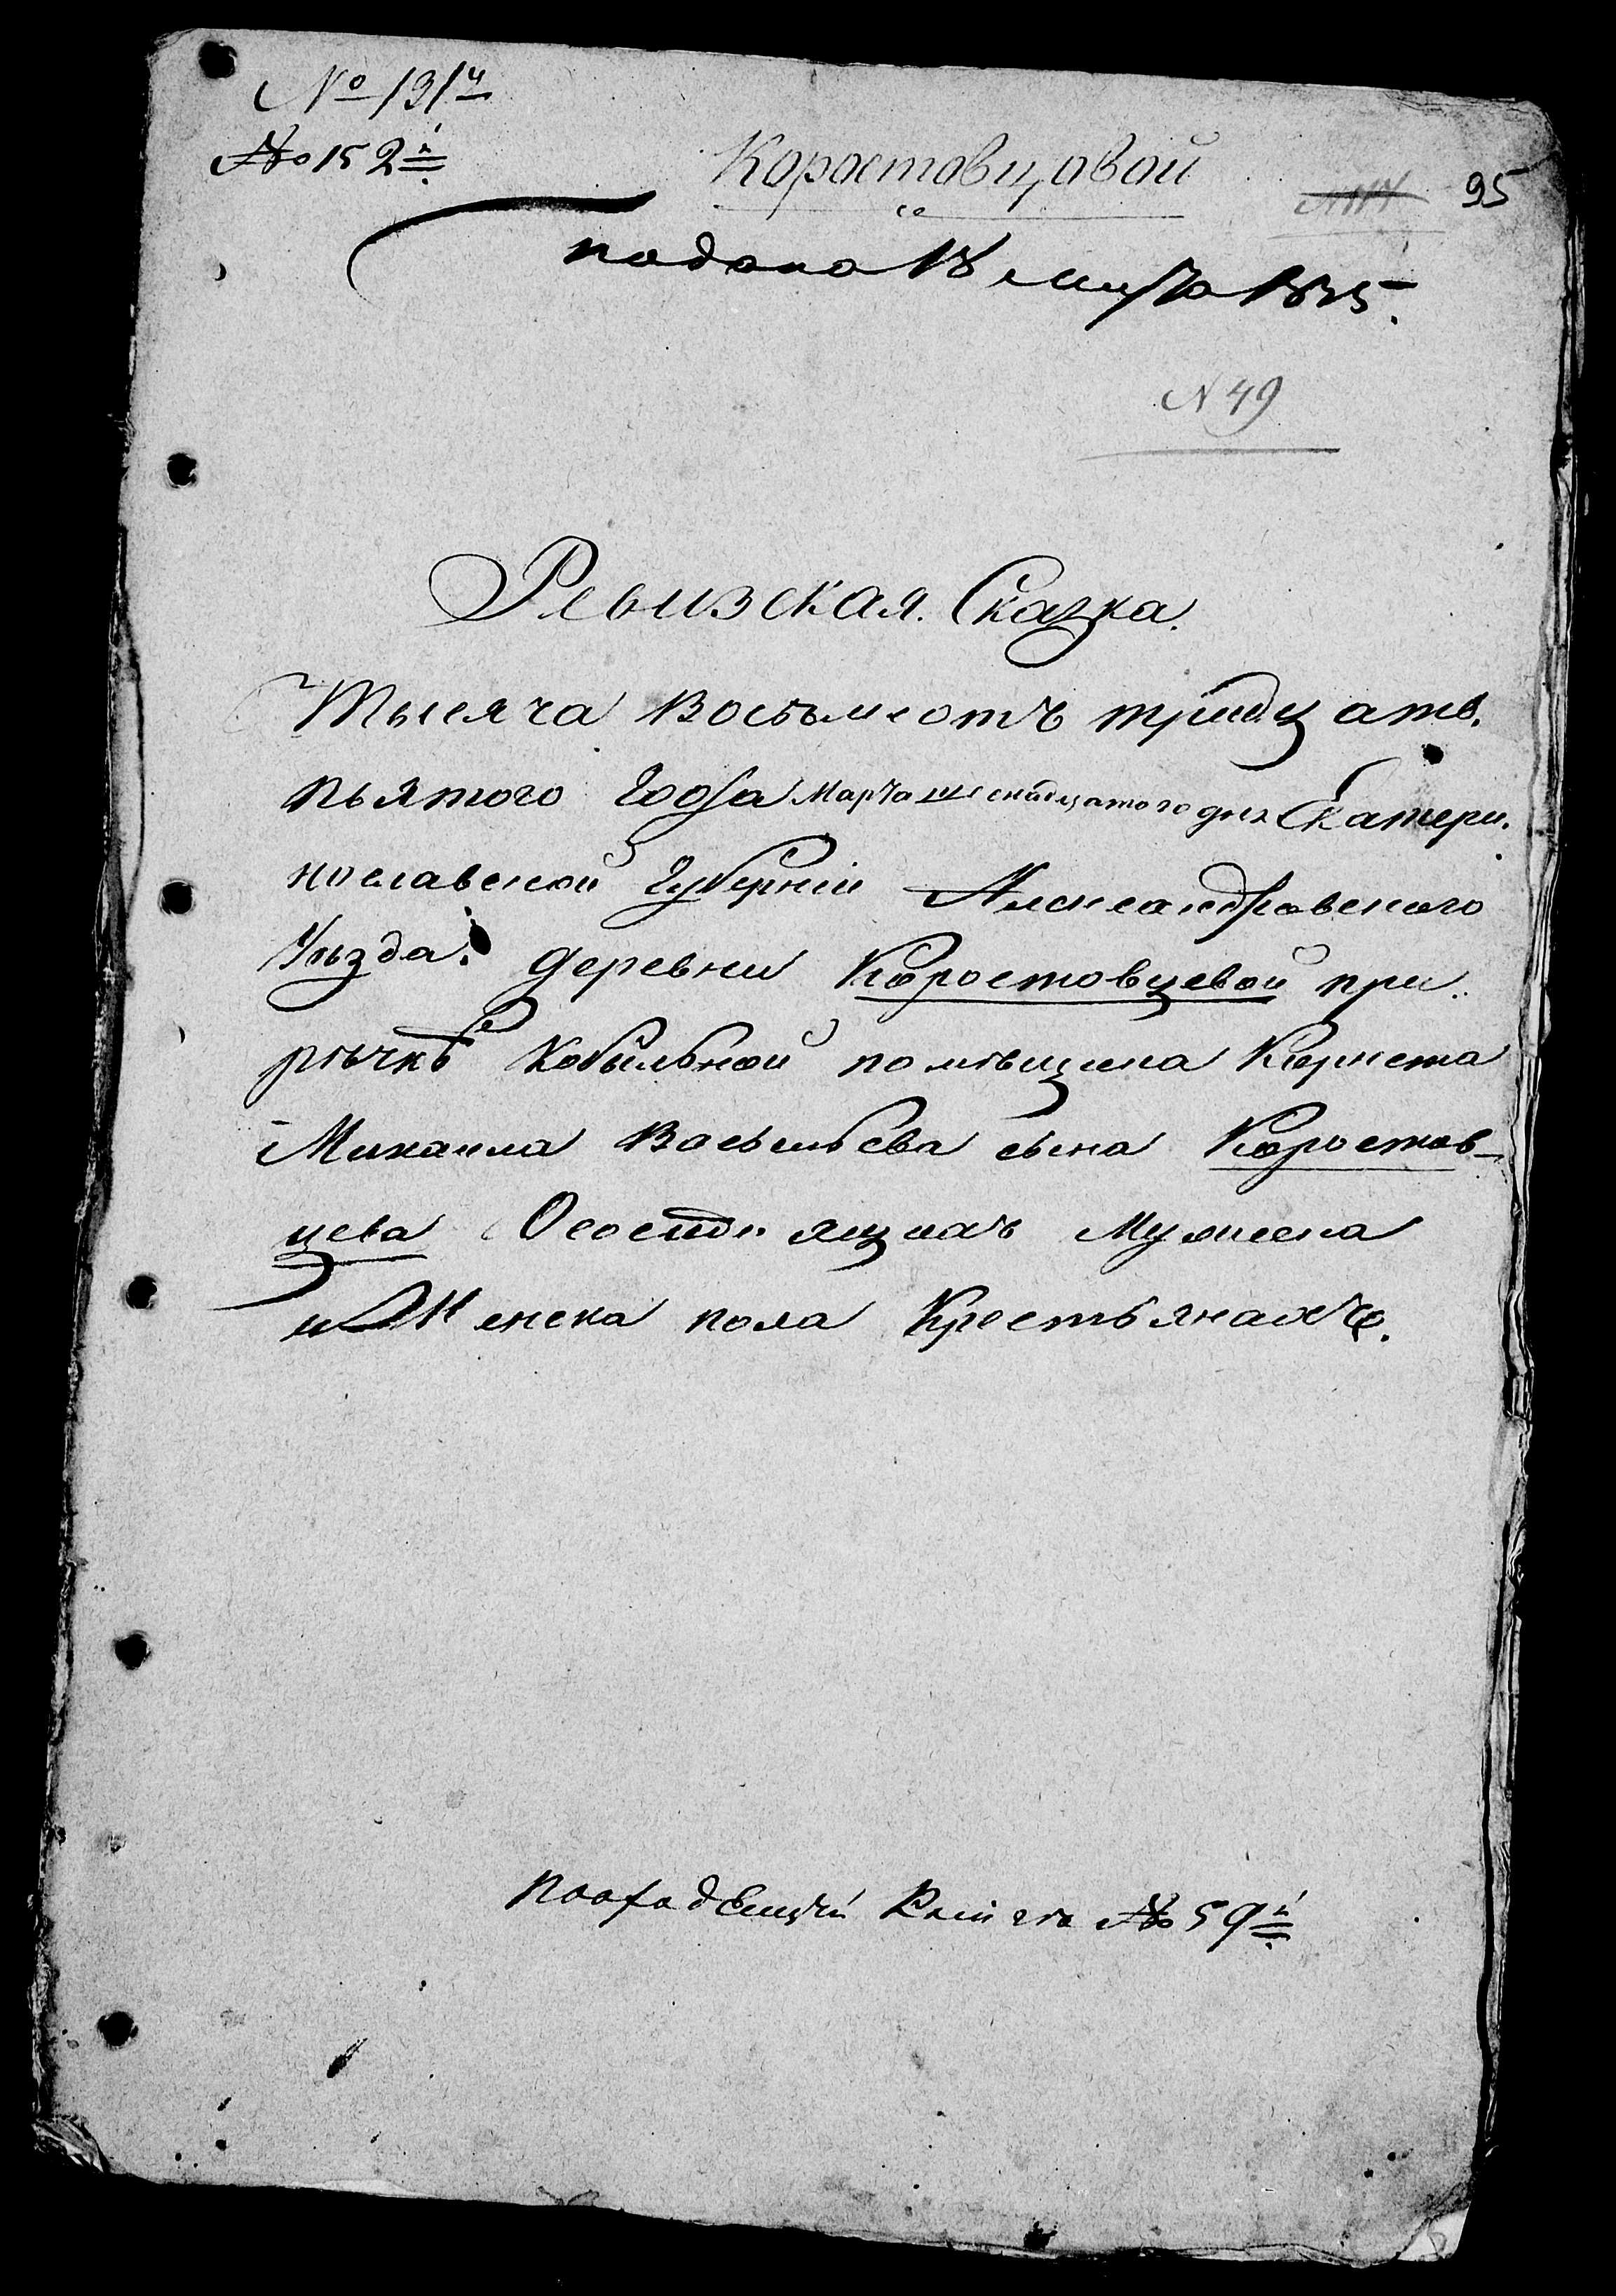 № 131й
№ 152й
Коростовцовой
95
подана 18 марта 1835.
N 49
Ревизская Сказка.
Тысяча Восъмсотъ тридцать
пьятого Года Марта шеснадцатого дня Екатери
нославской Губерніи Александровского
Уѣзда. деревни Коростовцевой при
рѣчкѣ Кобыльной помѣщика Корнета
Михаила Васильева сына Коростов-
цева Осостоящихъ Мужеска
и Женска пола Крестьянахъ.
книге № 59й